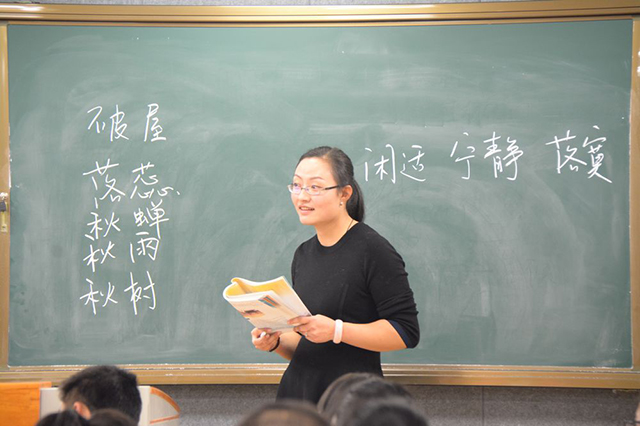 破屋
落蕊
秋蝉
秋雨
秋树
闲适 宁静 落寞